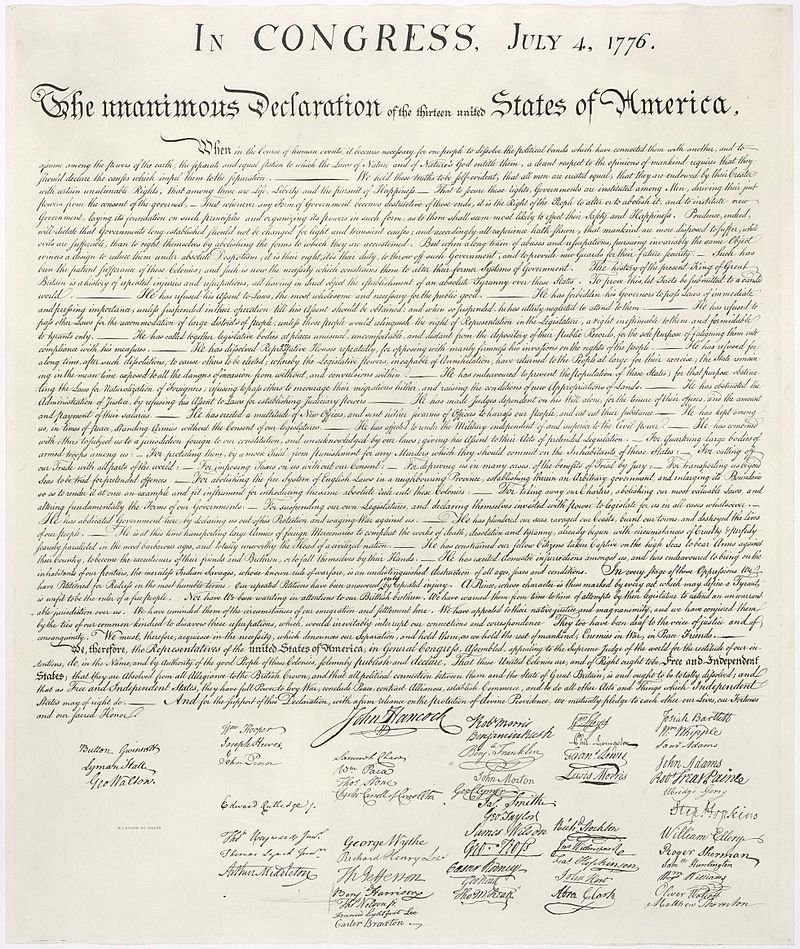 In CONGRESS, July 4, 1776.
The unanimous Declaration of the thirteen united States of America,
When in the Course of human events, it becomes necessary for one people to dissolve the political bands which have connected them with another, and to
assume among the powers of the earth, the separate and equal station to which the Laws of Nature and of Nature's God entitle them, a decent respect to the opinions of mankind requires that they
should declare the causes which impel them to the separation. — We hold these truths to be self-evident, that all men are created equal, that they are endowed by their Creator
with certain unalienable Rights, that among these are Life, Liberty and the pursuit of Happiness. — That to secure these rights, Governments are instituted among Men, deriving their just
powers from the consent of the governed, — That whenever any Form of Government becomes destructive of these ends, it is the Right of the People to alter or to abolish it, and to institute new
Government, laying its foundation on such principles and organizing its powers in such form, as to them shall seem most likely to effect their Safety and Happiness. Prudence, indeed,
will dictate that Governments long established should not be changed for light and transient causes; and accordingly all experience hath shewn, that mankind are more disposed to suffer, while
evils are sufferable, than to right themselves by abolishing the forms to which they are accustomed. But when a long train of abuses and usurpations, pursuing invariably the same Object
evinces a design to reduce them under absolute Despotism, it is their right, it is their duty, to throw off such Government, and to provide new Guards for their future security. — Such has
been the patient sufferance of these Colonies; and such is now the necessity which constrains them to alter their former Systems of Government. The history of the present King of Great
Britain is a history of repeated injuries and usurpations, all having in direct object the establishment of an absolute Tyranny over these States. To prove this, let Facts be submitted to a candid
world. — He has refused his Assent to Laws, the most wholesome and necessary for the public good. — He has forbidden his Governors to pass Laws of immediate
and pressing importance, unless suspended in their operation till his Assent should be obtained; and when so suspended, he has utterly neglected to attend to them. — He has refused to
pass other Laws for the accommodation of large districts of people, unless those people would relinquish the right of Representation in the Legislature, a right inestimable to them and formidable
to tyrants only. — He has called together legislative bodies at places unusual, uncomfortable, and distant from the depository of their public Records, for the sole purpose of fatiguing them into
compliance with his measures. — He has dissolved Representative Houses repeatedly, for opposing with manly firmness his invasions on the rights of the people. — He has refused for
a long time, after such dissolutions, to cause others to be elected; whereby the Legislative powers, incapable of Annihilation, have returned to the People at large for their exercise; the State remain-
ing in the mean time exposed to all the dangers of invasion from without, and convulsions within. — He has endeavoured to prevent the population of these States; for that purpose obstruc-
ting the Laws for Naturalization of Foreigners; refusing to pass others to encourage their migrations hither, and raising the conditions of new Appropriations of Lands. — He has obstructed the
Administration of Justice, by refusing his Assent to Laws for establishing Judiciary powers. — He has made Judges dependent on his Will alone, for the tenure of their offices, and the amount
and payment of their salaries. — He has erected a multitude of New Offices, and sent hither swarms of Officers to harrass our people, and eat out their substance. — He has kept among
us, in times of peace, Standing Armies without the Consent of our legislatures. — He has affected to render the Military independent of and superior to the Civil power. — He has combined
with others to subject us to a jurisdiction foreign to our constitution, and unacknowledged by our laws; giving his Assent to their Acts of pretended Legislation: — For Quartering large bodies of
armed troops among us: — For protecting them, by a mock Trial, from punishment for any Murders which they should commit on the Inhabitants of these States: — For cutting off
our Trade with all parts of the world: — For imposing Taxes on us without our Consent: — For depriving us in many cases, of the benefits of Trial by Jury: — For transporting us beyond
Seas to be tried for pretended offences — For abolishing the free System of English Laws in a neighbouring Province, establishing therein an Arbitrary government, and enlarging its Boundaries
so as to render it at once an example and fit instrument for introducing the same absolute rule into these Colonies: — For taking away our Charters, abolishing our most valuable Laws, and
altering fundamentally the Forms of our Governments: — For suspending our own Legislatures, and declaring themselves invested with power to legislate for us in all cases whatsoever. —
He has abdicated Government here, by declaring us out of his Protection and waging War against us. — He has plundered our seas, ravaged our Coasts, burnt our towns, and destroyed the lives
of our people. — He is at this time transporting large Armies of foreign Mercenaries to compleat the works of death, desolation and tyranny, already begun with circumstances of Cruelty & perfidy
scarcely paralleled in the most barbarous ages, and totally unworthy the Head of a civilized nation. — He has constrained our fellow Citizens taken Captive on the high Seas to bear Arms against
their Country, to become the executioners of their friends and Brethren, or to fall themselves by their Hands. — He has excited domestic insurrections amongst us, and has endeavoured to bring on the
inhabitants of our frontiers, the merciless Indian Savages, whose known rule of warfare, is an undistinguished destruction of all ages, sexes and conditions. In every stage of these Oppressions We
have Petitioned for Redress in the most humble terms: Our repeated Petitions have been answered only by repeated injury. A Prince, whose character is thus marked by every act which may define a Tyrant,
is unfit to be the ruler of a free people. Nor have We been wanting in attentions to our Brittish brethren. We have warned them from time to time of attempts by their legislature to extend an unwarrant-
able jurisdiction over us. We have reminded them of the circumstances of our emigration and settlement here. We have appealed to their native justice and magnanimity, and we have conjured them
by the ties of our common kindred to disavow these usurpations, which, would inevitably interrupt our connections and correspondence. They too have been deaf to the voice of justice and of
consanguinity. We must, therefore, acquiesce in the necessity, which denounces our Separation, and hold them, as we hold the rest of mankind, Enemies in War, in Peace Friends. —
We, therefore, the Representatives of the united States of America, in General Congress, Assembled, appealing to the Supreme Judge of the world for the rectitude of our in-
tentions, do, in the Name, and by Authority of the good People of these Colonies, solemnly publish and declare, That these United Colonies are, and of Right ought to be Free and Independent
States; that they are Absolved from all Allegiance to the British Crown, and that all political connection between them and the State of Great Britain, is and ought to be totally dissolved; and
that as Free and Independent States, they have full Power to levy War, conclude Peace, contract Alliances, establish Commerce, and to do all other Acts and Things which Independent
States may of right do. — And for the support of this Declaration, with a firm reliance on the Protection of divine Providence, we mutually pledge to each other our Lives, our Fortunes
and our sacred Honor.
Button Gwinnett
Lyman Hall
Geo Walton.
Wm Hooper
Joseph Hewes,
John Penn
Edward Rutledge /.
Thos Heyward Junr.
Thomas Lynch Junr.
Arthur Middleton
John Hancock
Samuel Chase
Wm Paca
Thos Stone
Charles Carroll of Carrollton
George Wythe
Richard Henry Lee
Th Jefferson
Benj Harrison
Thos Nelson jr.
Francis Lightfoot Lee
Carter Braxton
Robt Morris
Benjamin Rush
Benj. Franklin
John Morton
Geo Clymer
Jas. Smith
Geo Taylor
James Wilson
Geo. Ross
Caesar Rodney
Geo Read
Tho M:Kean
Wm Floyd
Phil. Livingston
Frans. Lewis
Lewis Morris
Richd. Stockton
Jno Witherspoon
Fras. Hopkinson
John Hart
Abra Clark
Josiah Bartlett
Wm Whipple
Saml Adams
John Adams
Robt Treat Paine
Elbridge Gerry
Step. Hopkins
William Ellery
Roger Sherman
Saml Huntington
Wm Williams
Oliver Wolcott
Matthew Thornton